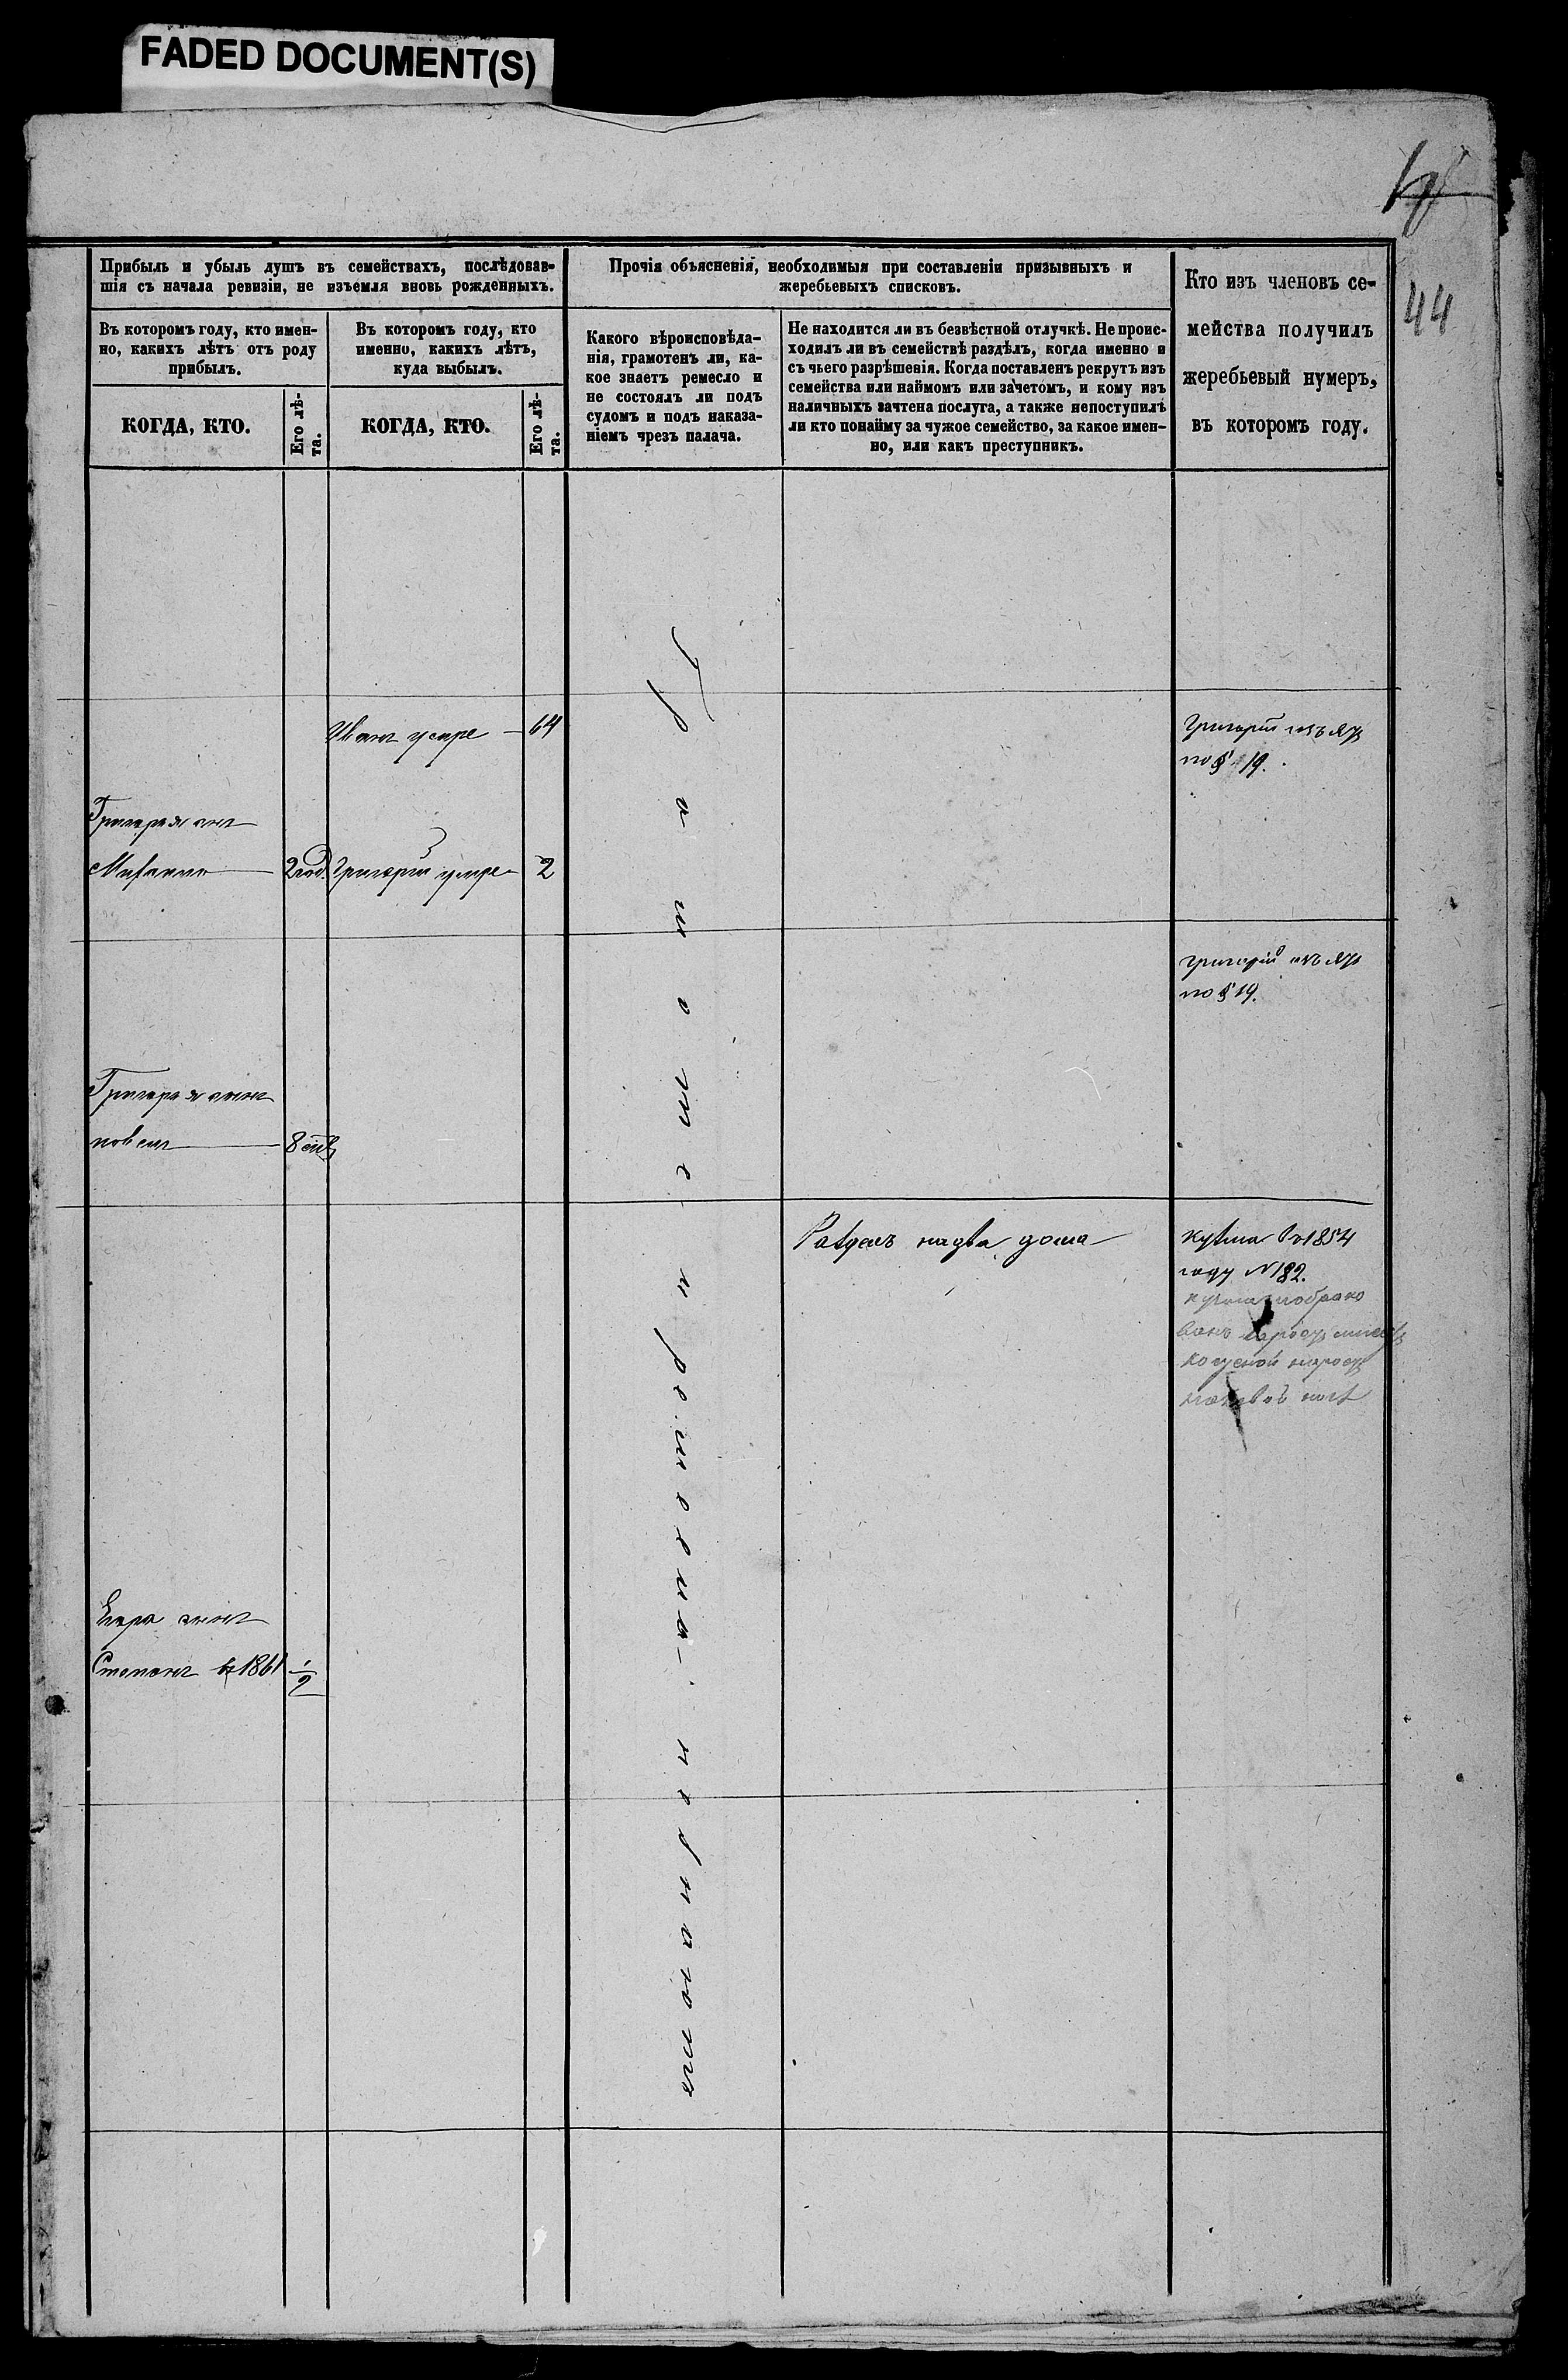 FADED DOCUMENT(S)
44
Прибыль и убыль душъ въ семействахъ, послѣдовав-
шія съ начала ревизіи, не изъемля вновь рожденныхъ.
Прочія объясненія, необходимыя при составленіи призывныхъ и
жеребьевыхъ списковъ.
Кто изъ членовъ се-
мейства получилъ
жеребьевый нумеръ,
въ которомъ году.
Въ которомъ году, кто имен-
но, какихъ лѣтъ отъ роду
прибылъ.
Въ которомъ году, кто
именно, какихъ лѣтъ,
куда выбылъ.
Какого вѣроисповѣда-
нія, грамотенъ ли, ка-
кое знаетъ ремесло и
не состоялъ ли подъ
судомъ и подъ наказа-
ніемъ чрезъ палача.
Не находится ли въ безвѣстной отлучкѣ. Не проис-
ходилъ ли въ семействѣ раздѣлъ, когда именно и
съ чьего разрѣшенія. Когда поставленъ рекрутъ изъ
семейства или наймомъ или зачетомъ, и кому изъ
наличныхъ зачтена послуга, а также непоступилъ
ли кто понайму за чужое семейство, за какое имен-
но, или какъ преступникъ.
КОГДА, КТО.
Его лѣ-
та.
КОГДА, КТО.
Его лѣ-
та.
Иванъ умре 64
Григорій изъят
по § 19.
Григорья сынъ
2 год. Григорій умре 2
Григорій изъят
по § 19.
Григорья сынъ
8
Грамоте и ремесла не знаютъ
Раздѣлъ надва дома
Кузма въ 1854
году №182.
Кузма
Егора сынъ
Степанъ въ 1861 1/2